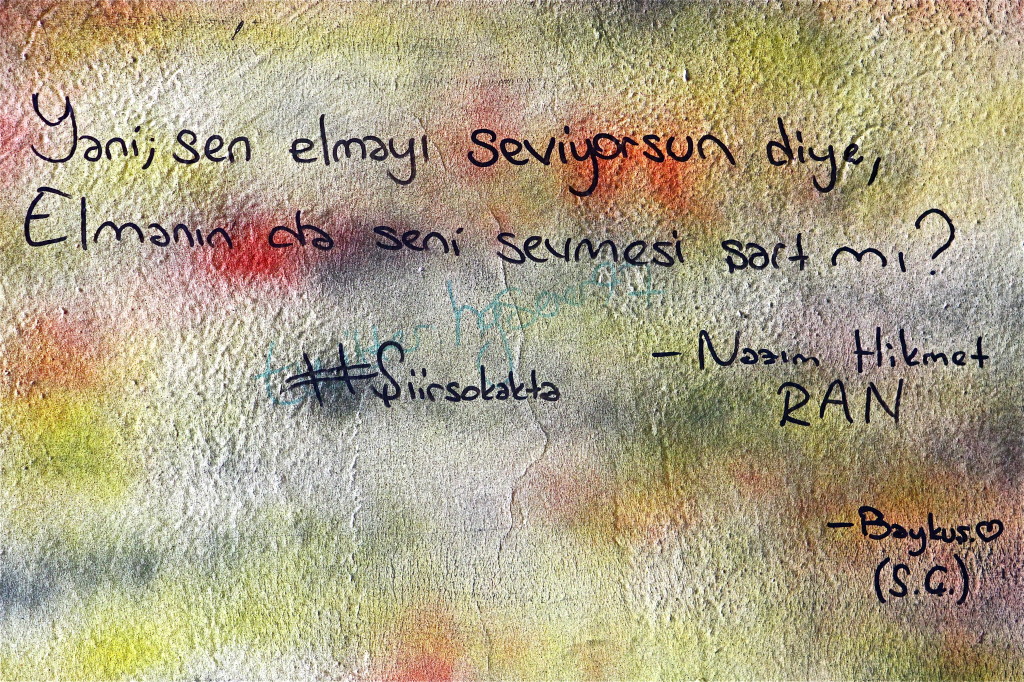 Yani; sen elmayı seviyorsun diye,
Elmanın da seni sevmesi şart mı?
- Nazım Hikmet
RAN
#Şiirsokakta
- Baykuş ♡
(S.G.)